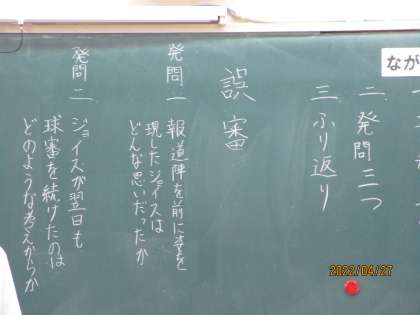 なが
二 発問三つ
三 ふり返り
誤審
発問一 報道陣を前に姿を
現したジョイスは
どんな思いだったか
発問二 ジョイスが翌日も
球審を続けたのは
どのような考えからか
2022/04/27